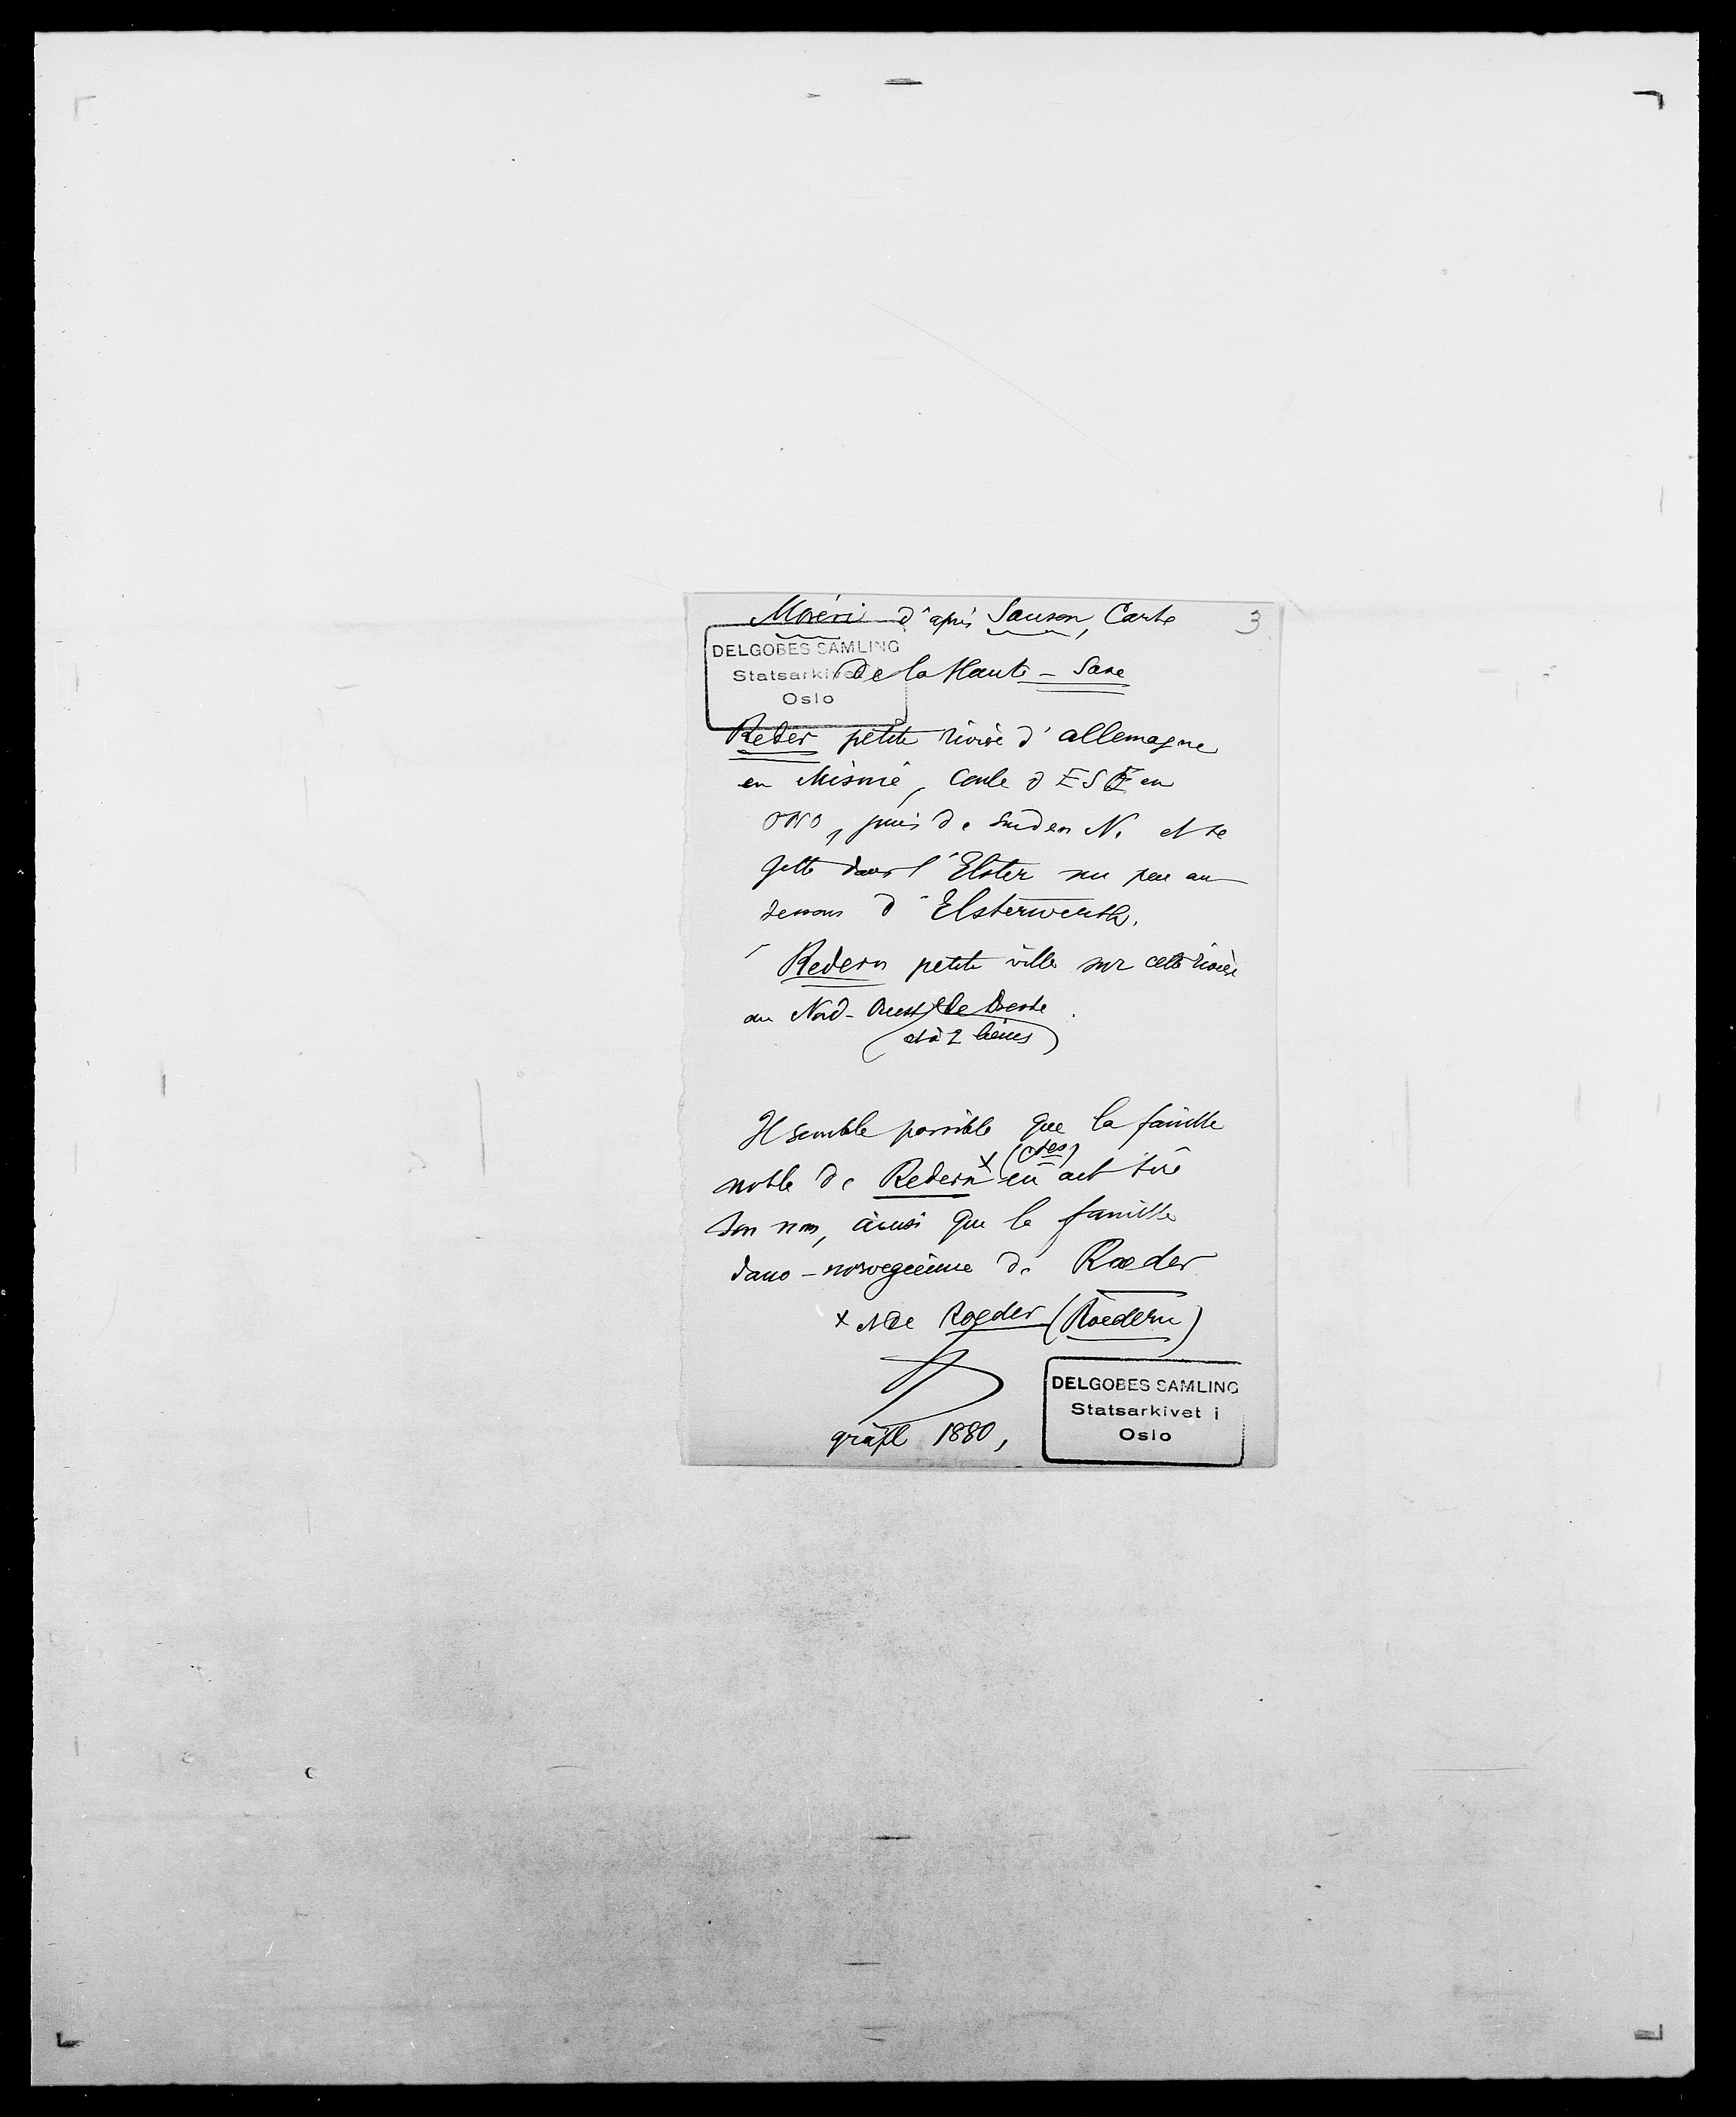 Moréri d'après Sanson, Carte 3
DELGOBES SAMLING
Statsarkivet i
Oslo
de la Haute-Saxe
Reder petite rivière d'allemagne
en Misnie, coule d ESE en
ONO, puis de Sud en N. et se
jette dans l'Elster un peu au
dessous d'Elsterwerth.
Redern petite ville sur cette rivière
au Nord-Ouest de Dresde.
(et à 2 lieues)
Il semble possible que la famille
(Ctes)
noble de Redern x en ait tiré
son nom, ainsi que la famille
dano-norvegienne de Rœder
x de Roeder (Roedern)
gräfl 1880,
DELGOBES SAMLING
Statsarkivet i
Oslo